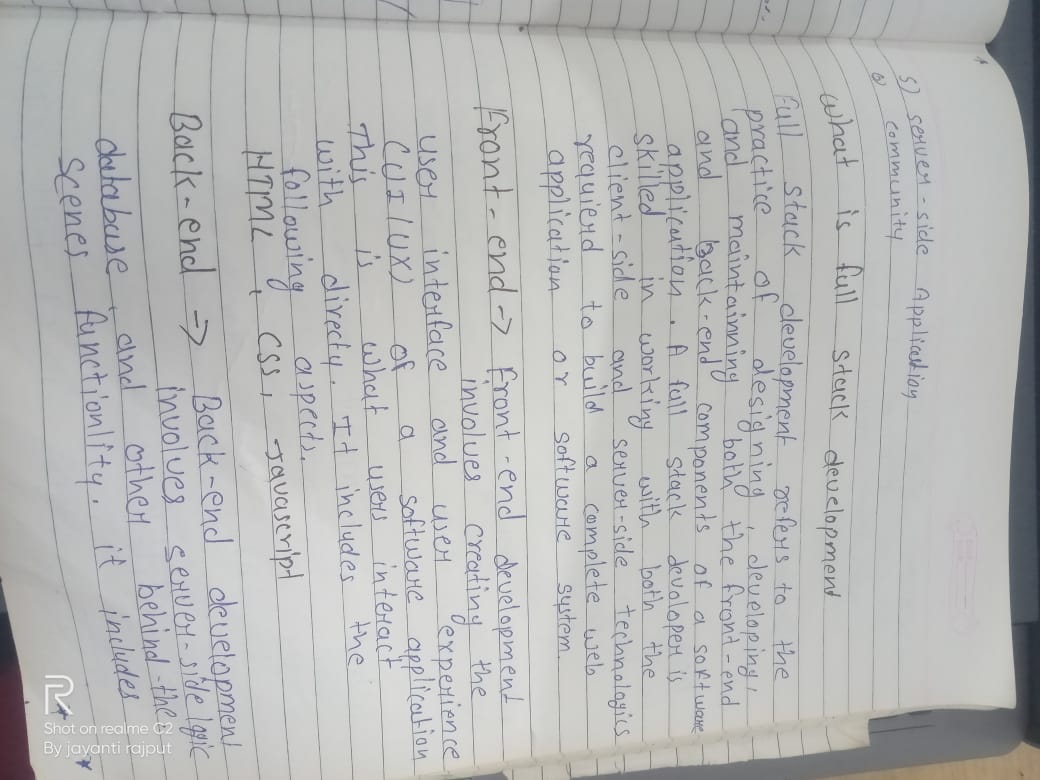 5) server-side Application
6) community
what is full stack development
Full stack development refers to the
practice of designing, developing,
and maintainning both the front-end
and Back-end components of a software
application. A full stack devaloper is
skilled in working with both the
client-side and server-side technologics
requierd to build a complete web
application or software system.
Front-end -> Front-end development
involves creating the
user interface and user experience
(UI/UX) of a software application
This is what users interact
with directy. It includes the
following aspects.
HTML, CSS, Javascript
Back-end => Back-end development
involves server-side logic
database, and other behind-the
Scenes functionlity. it includes
Shot on realme C2
By jayanti rajput